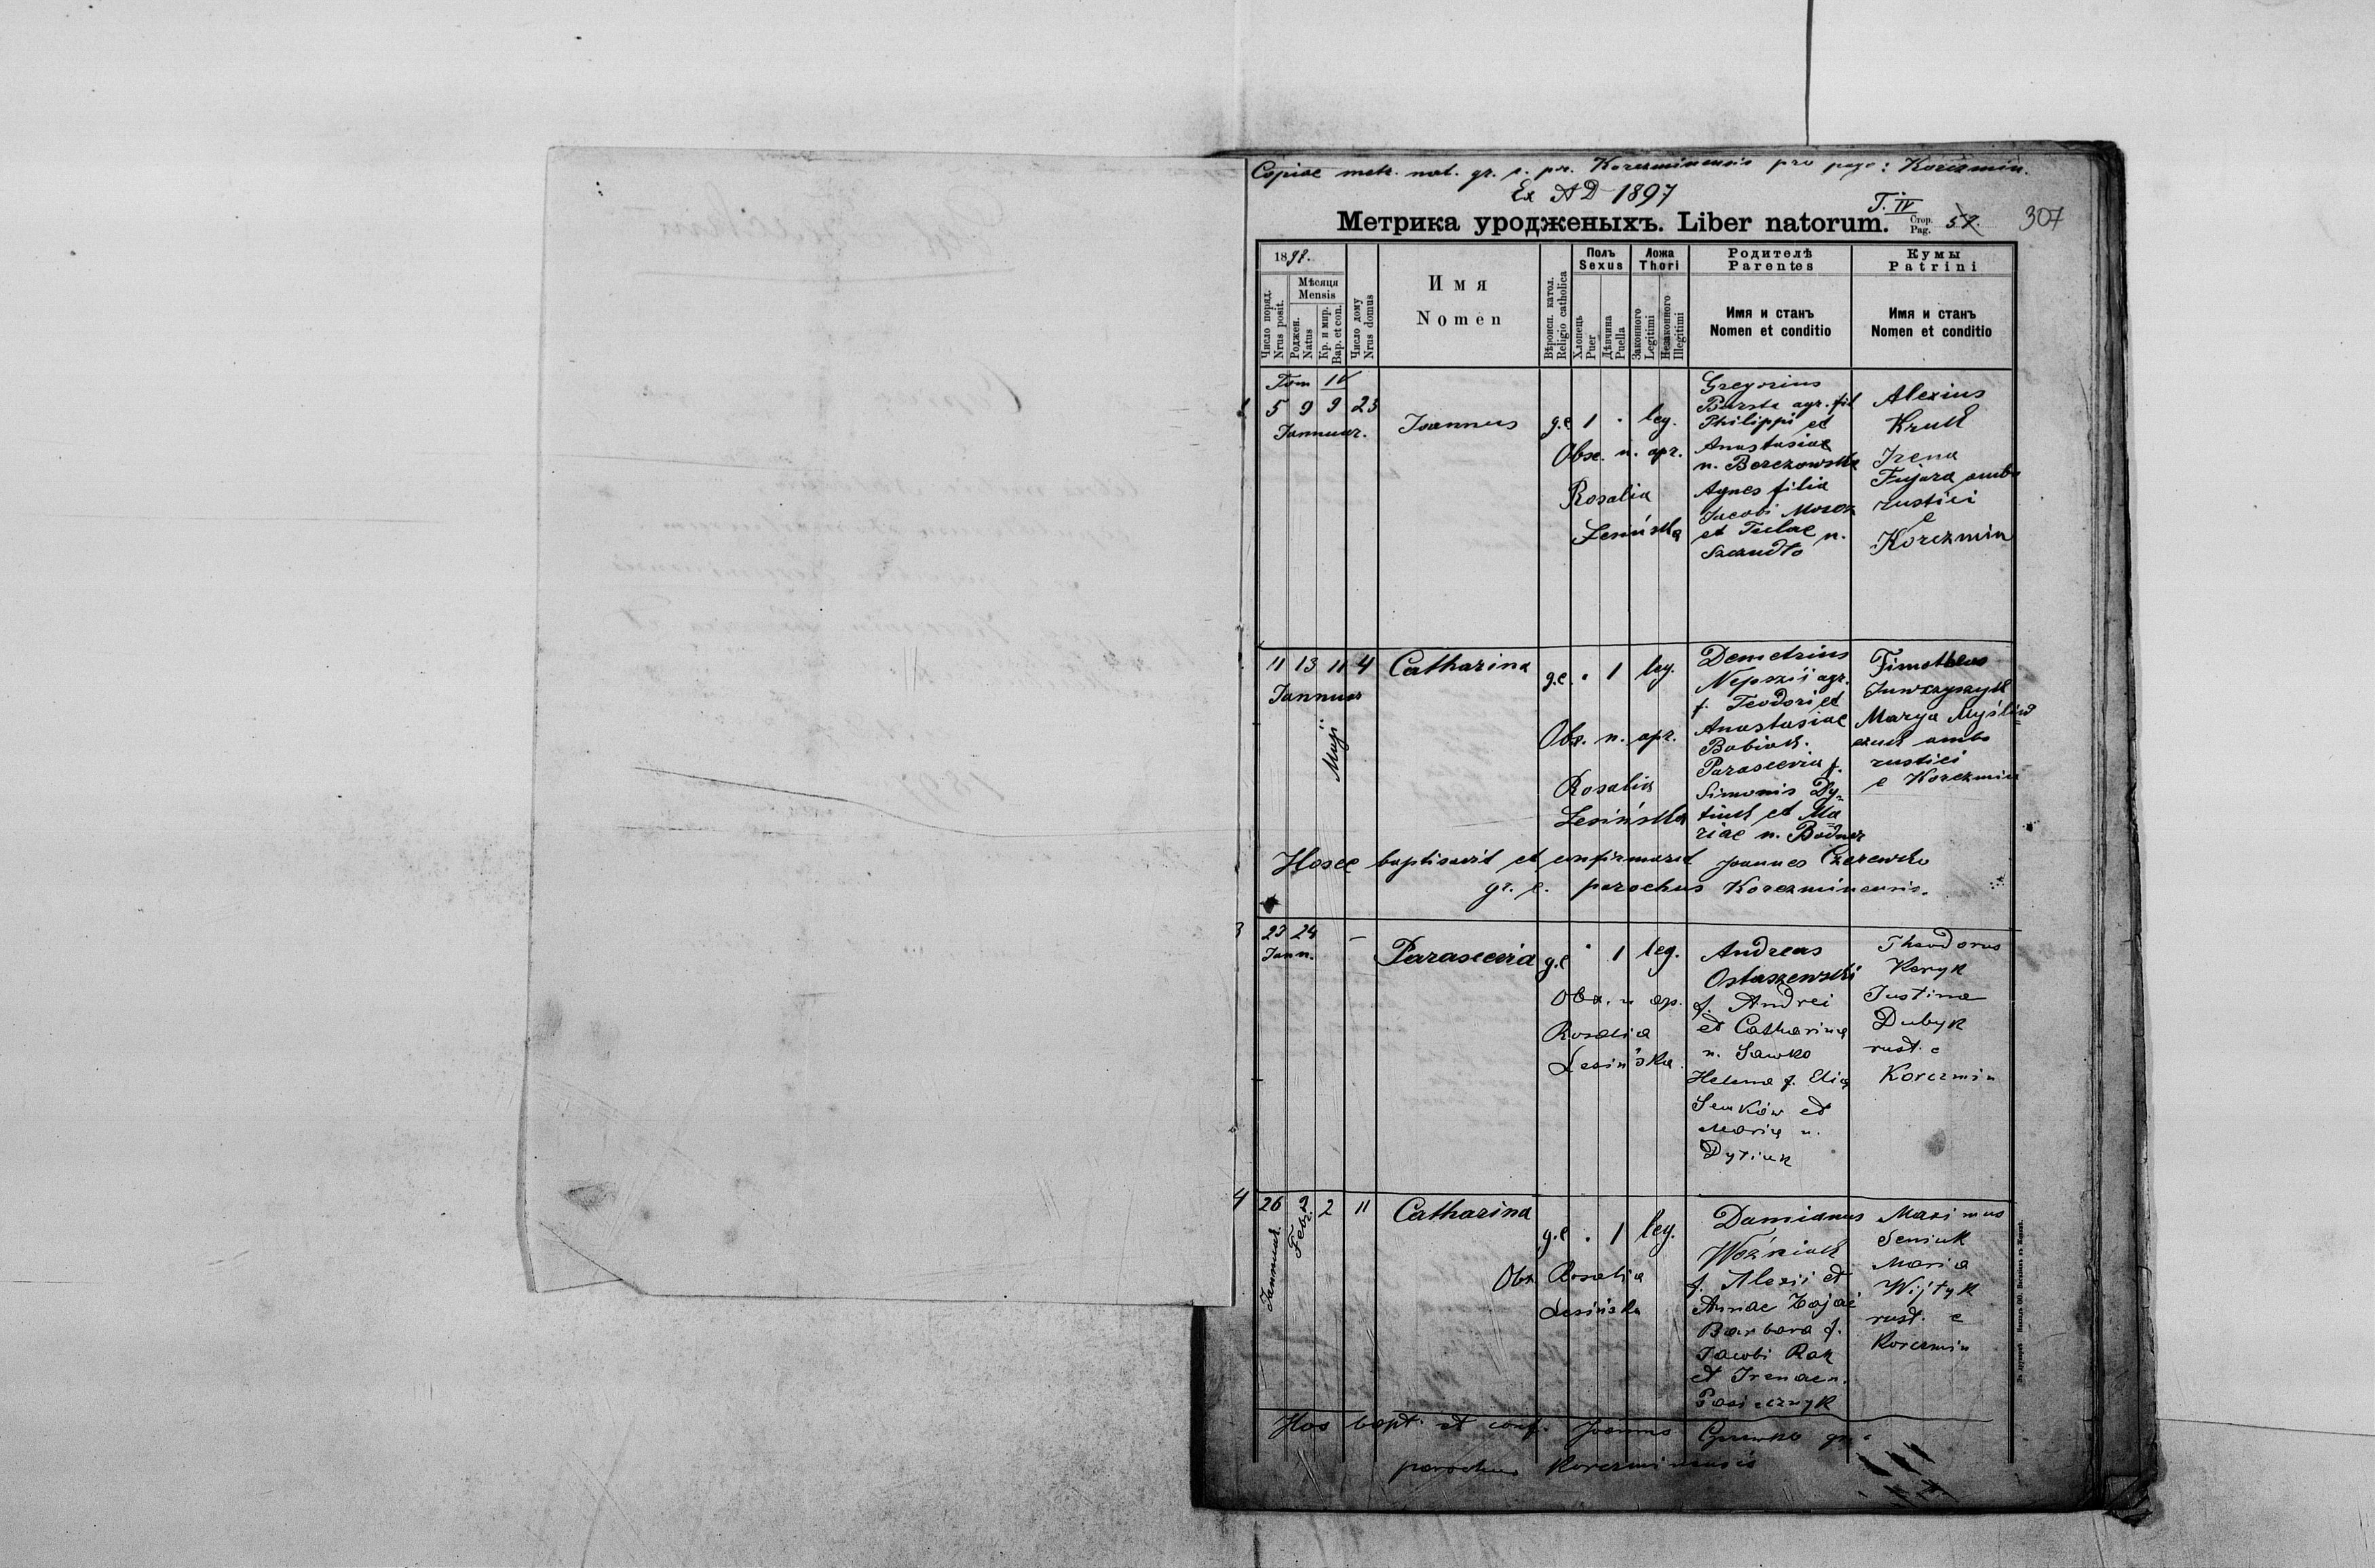 Copiae metr. nat. gr. c. par. Korczminensis pro pago: Korczmin.
Ex AD 1897
T. IV
Метрика уродженыхъ. Liber natorum. Стор. Pag. 57. 307
1897.
Число поряд. Nrus posit.
Мѣсяця Mensis
Роджен. Natus
Кр. и мир. Bap. et con.
Число дому Nrus domus
Имя
Nomen
Вѣроисп. катол. Religio catholica
Полъ Sexus
Хлопець Puer
Дѣвчина Puella
Ложа Thori
Законного Legitimi
Незаконного Illegitimi
Родителѣ Parentes
Имя и станъ
Nomen et conditio
Кумы Patrini
Имя и станъ
Nomen et conditio
Tom IV
5 9 9 23
Januar.
Joannes
g.c 1 · leg.
Obse. n. apr.
Rosalia
Lesińska
Gregorius
Burda agr. fil
Philippi et
Anastasiae
n. Berezowska
Agnes filia
Jacobi Moroz
et Teclae n.
Alexius
Kruk
Irena
Fujara ambo
rustici
e
Korczmin
11 13 11 4
Januar
Maji
Catharina
g.c. · 1 leg.
Obs. n. apr.
Rosalia
Lesińska
Demetrius
Nepszij agr.
f. Teodori et
Anastasiae
Babiak.
Parascevia f.
Simonis Dy-
tiuk et Ma
riae n. Bodnar
Timotheus
Marya Myśliw
czuk ambo
rustici
e Korczmin
Hosce baptisavit et confirmavit Joannes Czerewko
gr. c. parochus Korczminensis.
3
23 24 –
Jann.
Parascevia
g.c · 1 leg.
Obs. n ap.
Rosalia
Lesińska.
Andreas
Ostaszewski
f. Andrei
et Catharina
n. Sawko
Helena f. Elia
Senków et
Maria n.
Dytiuk
Theodorus
Koryk
Justina
Dubyk
rust. e
Korczmin
4
26 2 2 11
Januar.
Febr.
Catharina
g.c · 1 leg.
Obs Rosalia
Lesińska
Damianus
Woźniak
f. Alexii et
Annae Zajac
Barbara f.
Jacobi Rak
et Irenae n.
Pasicznyk
Maximus
Seniuk
Maria
Wijtyk
rust. e
Korczmin
Hos bapt. et conf. Joannes Czerewko gr. c
parochus Korczminensis